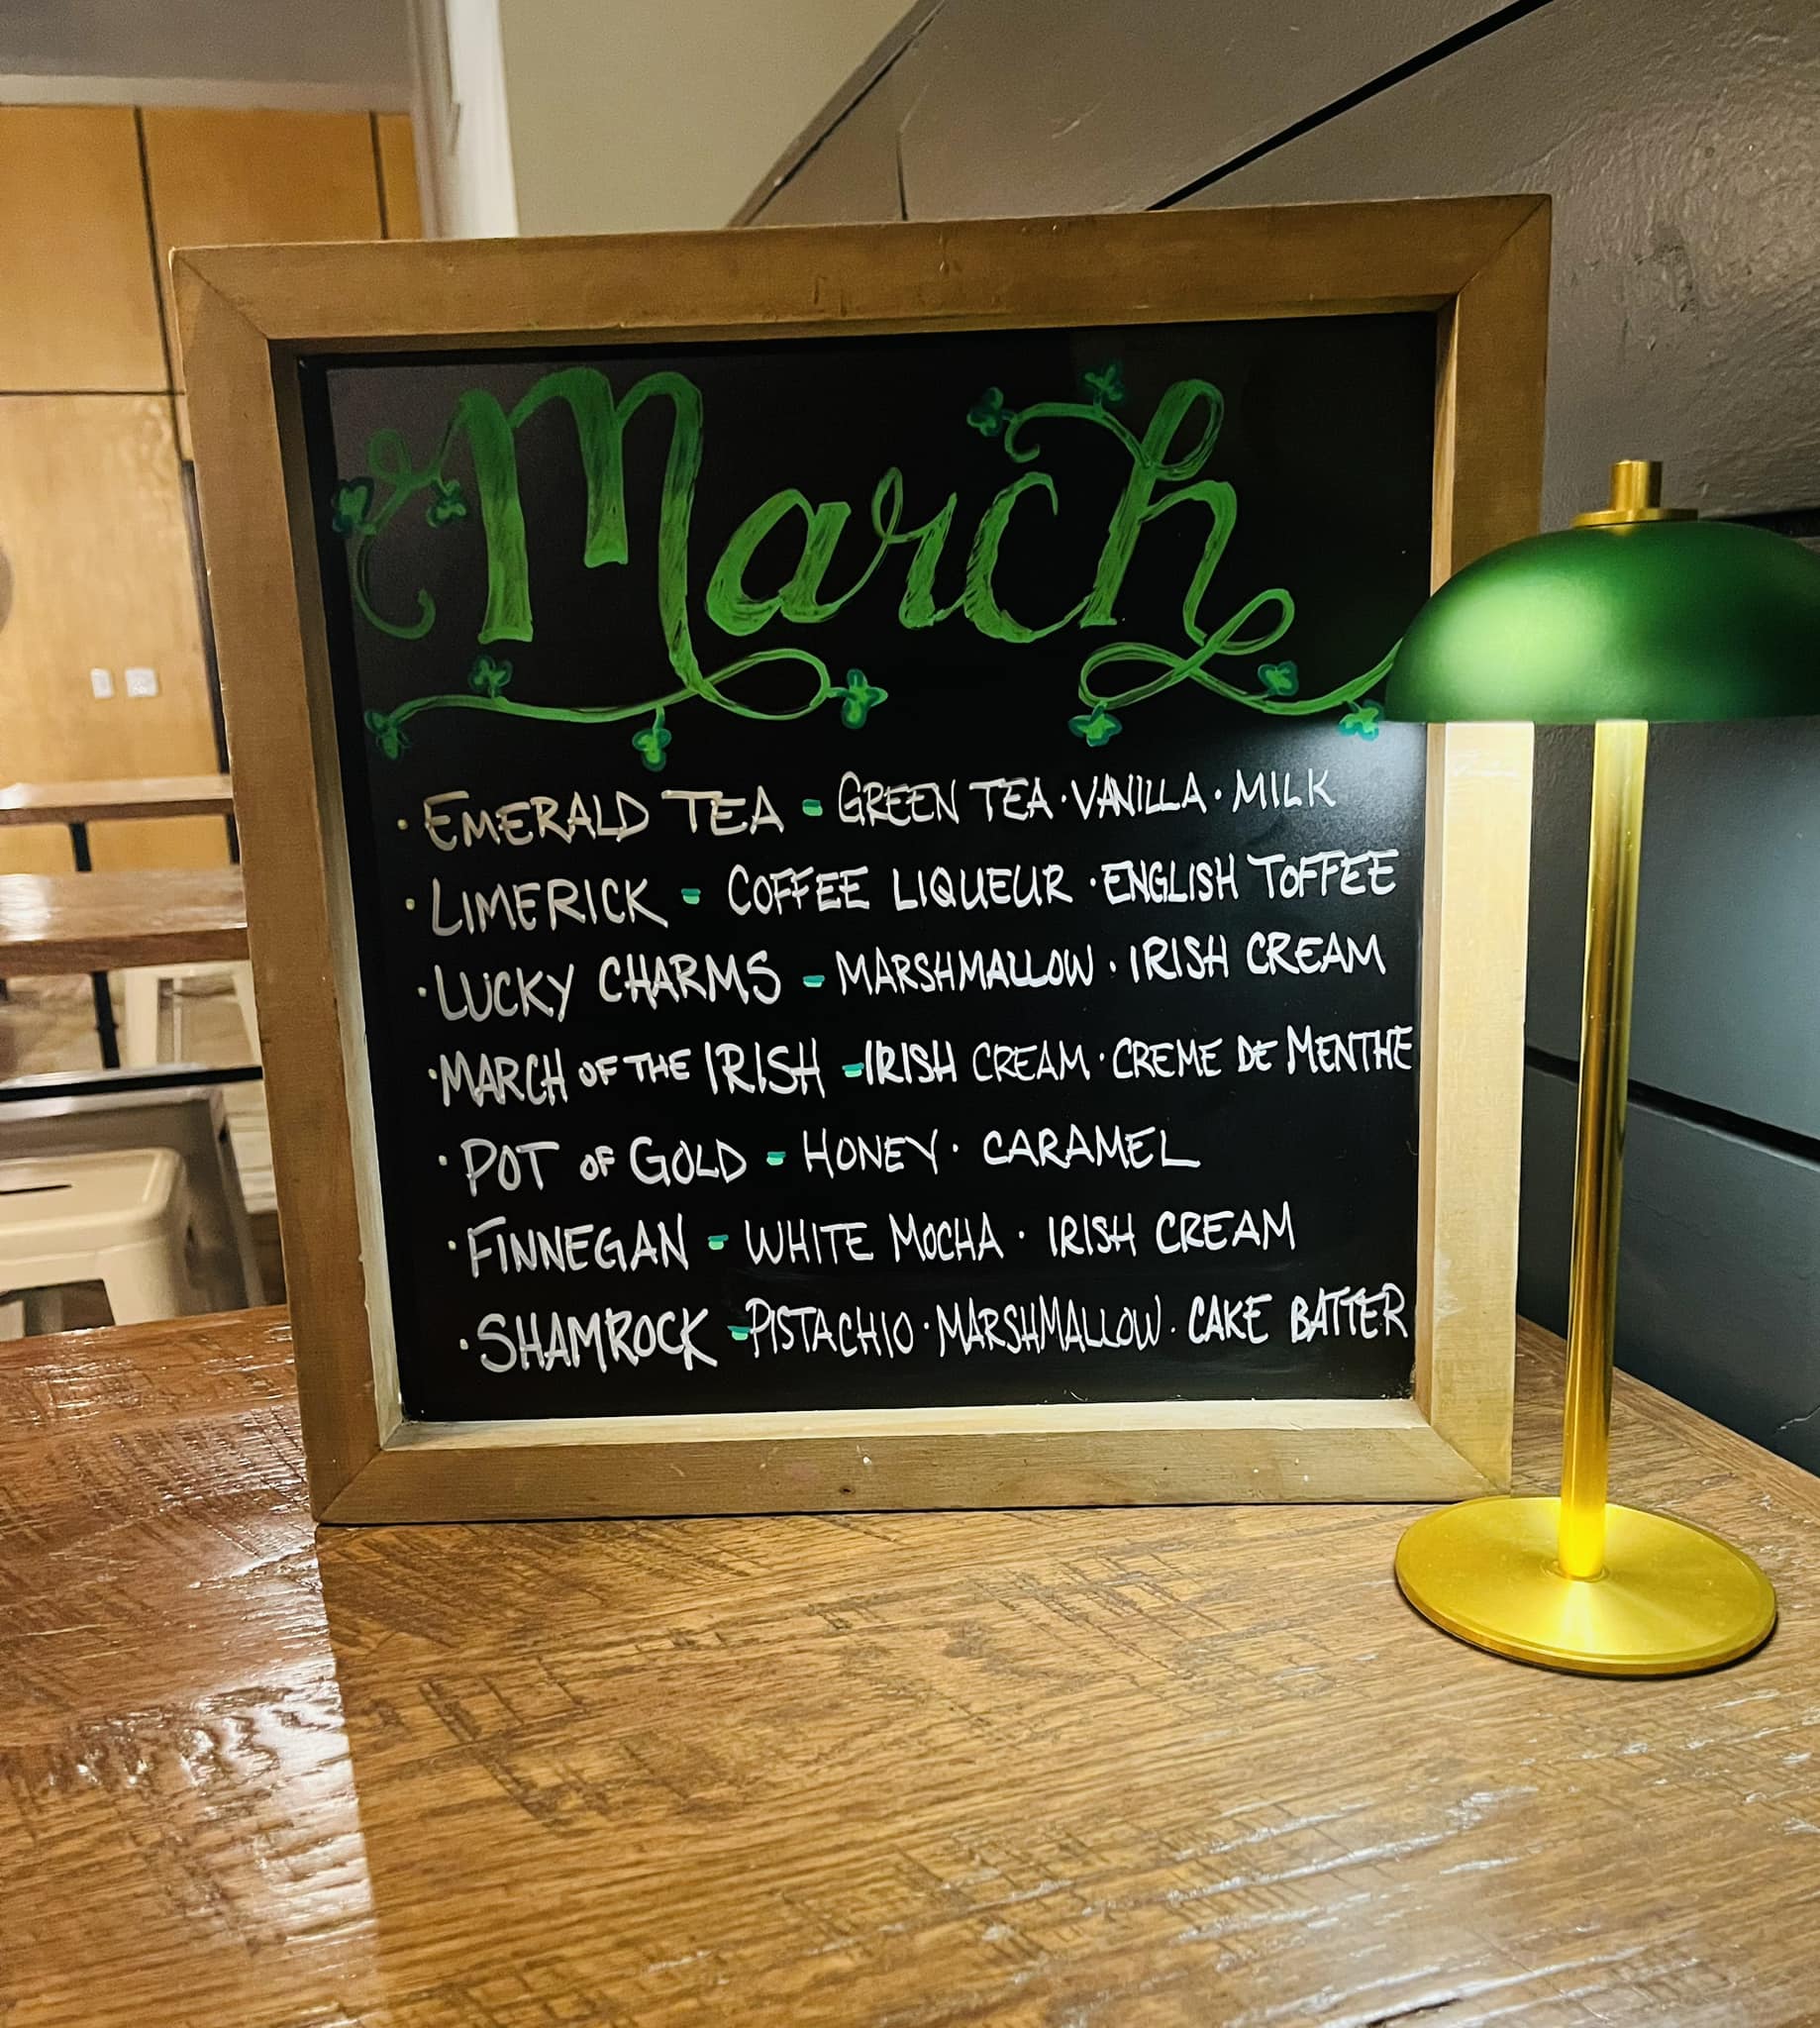 March
· EMERALD TEA - GREEN TEA · VANILLA · MILK
· LIMERICK - COFFEE LIQUEUR · ENGLISH TOFFEE
· LUCKY CHARMS - MARSHMALLOW · IRISH CREAM
· MARCH OF THE IRISH - IRISH CREAM · CREME DE MENTHE
· POT OF GOLD - HONEY · CARAMEL
· FINNEGAN - WHITE MOCHA · IRISH CREAM
· SHAMROCK - PISTACHIO · MARSHMALLOW · CAKE BATTER